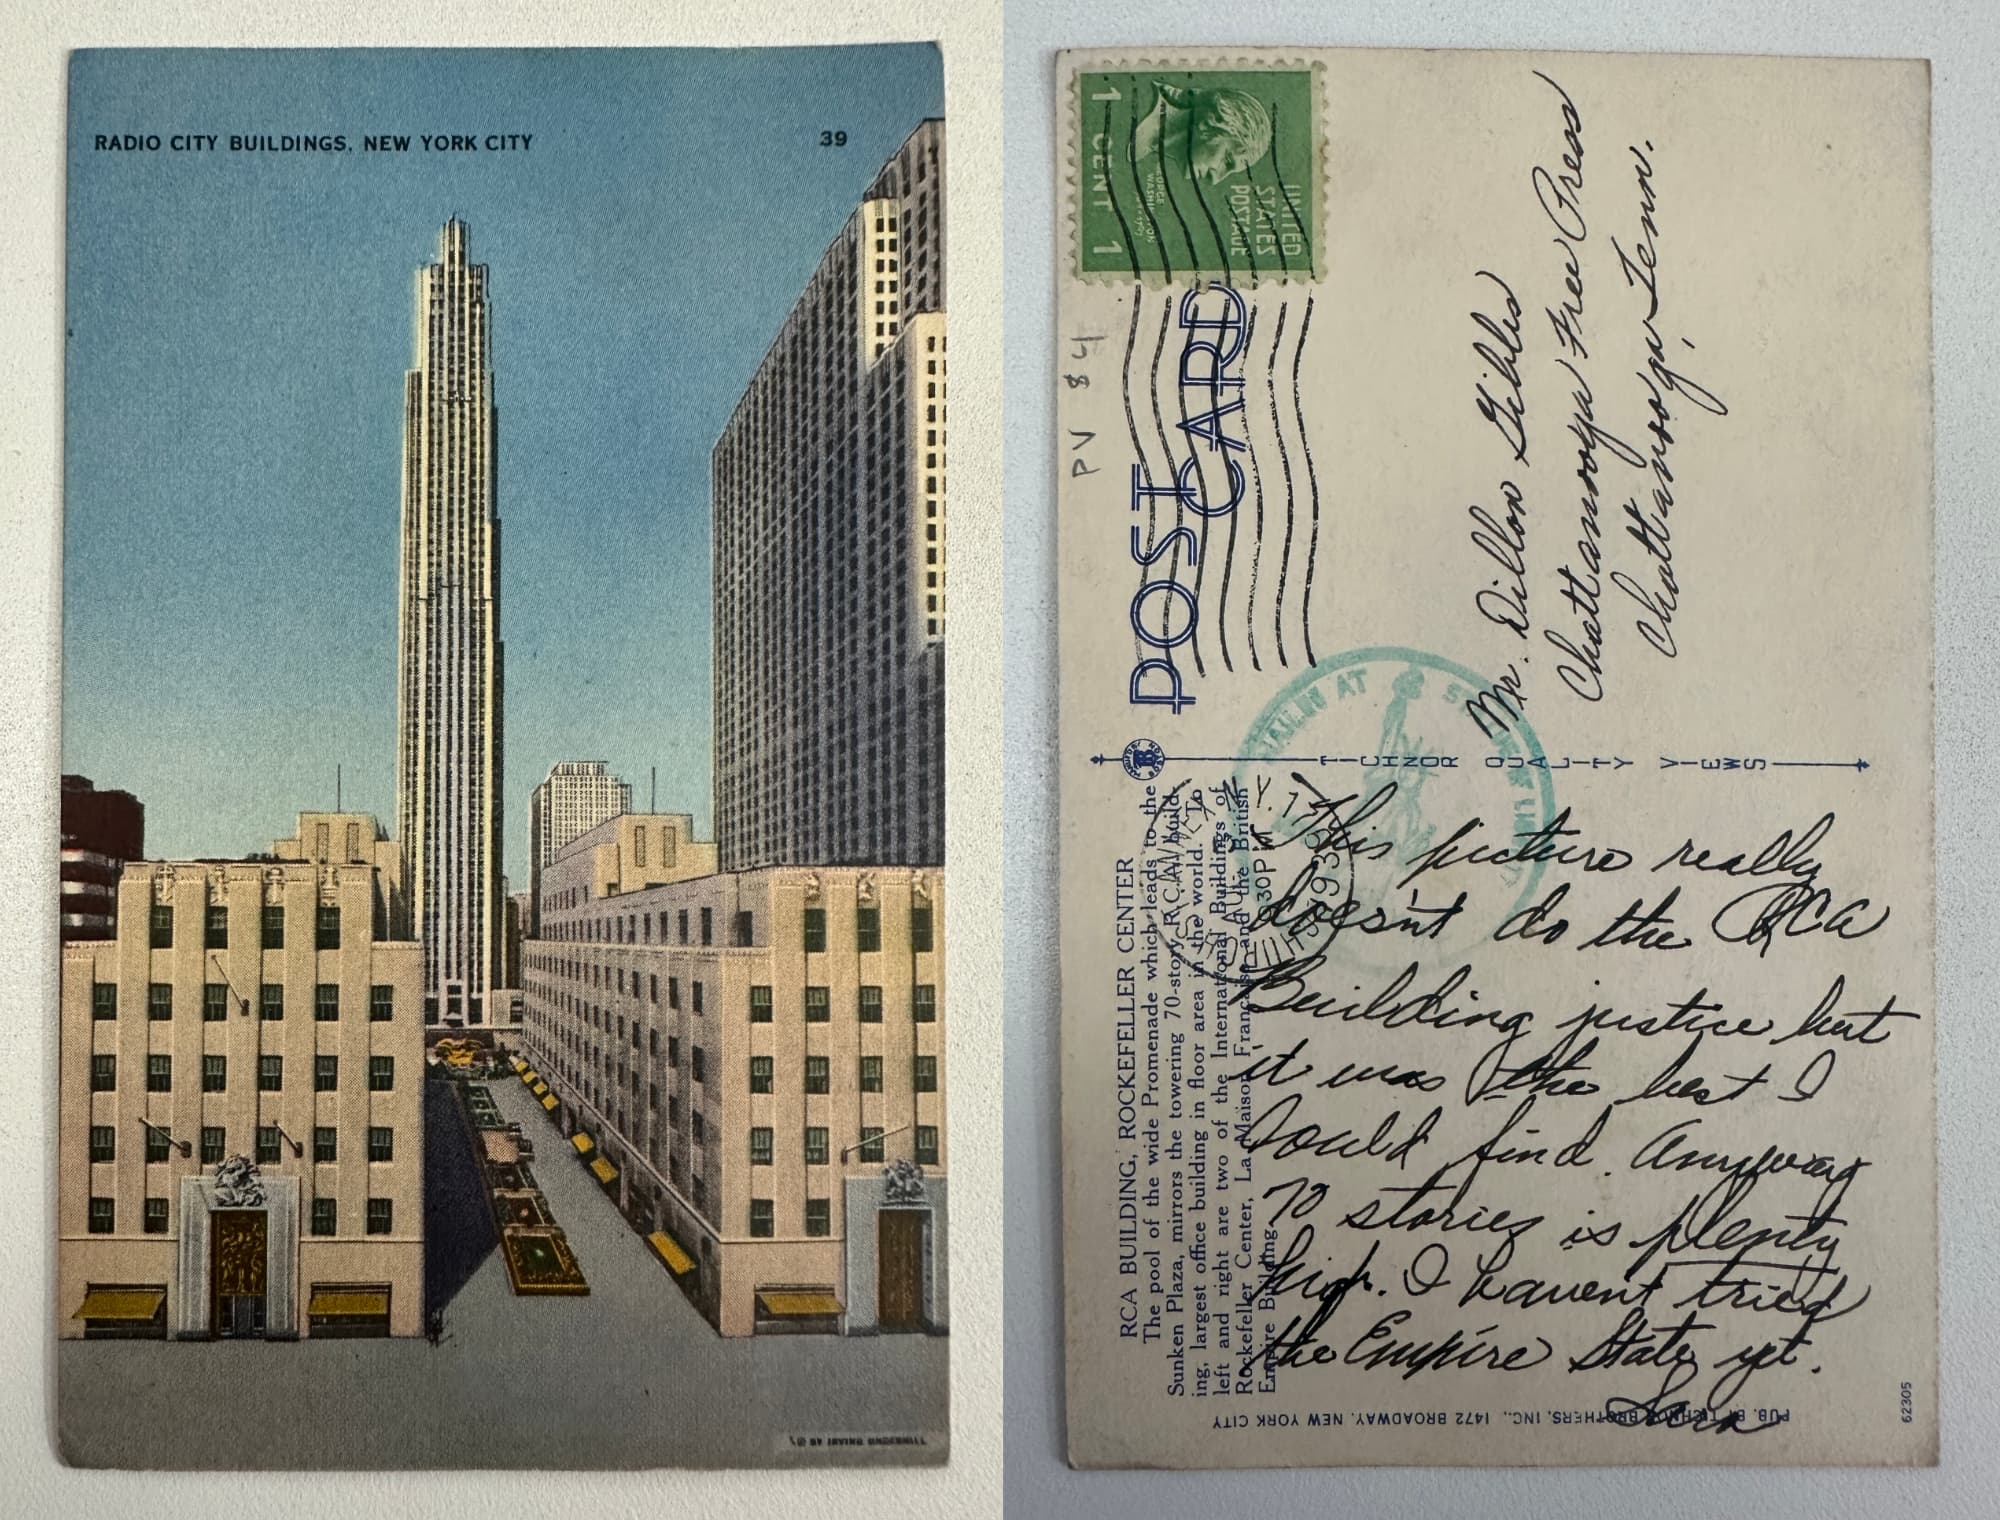 RADIO CITY BUILDINGS, NEW YORK CITY
39
UNITED
STATES
POSTAGE
GEORGE
WASHINGTON
1 CENT 1
PV $4
POST CARD
Mr. Dillon Gibbs
Chattanooga Free Press
Chattanooga, Tenn.
MAILED AT
TICHNOR QUALITY VIEWS
N.Y. 17
AUG
30 PM
1939
RCA BUILDING, ROCKEFELLER CENTER
The pool of the wide Promenade which leads to the
Sunken Plaza, mirrors the towering 70-story R.C.A. Build-
ing, largest office building in floor area in the world. To
left and right are two of the International Buildings of
Rockefeller Center, La Maison Francaise and the British
Empire Building.
This picture really
doesn't do the RCA
Building justice but
it was the best I
could find. Anyway
70 stories is plenty
high. I havent tried
the Empire State yet.
Sara
PUB. BY TICHNOR BROTHERS, INC., 1472 BROADWAY, NEW YORK CITY
62305